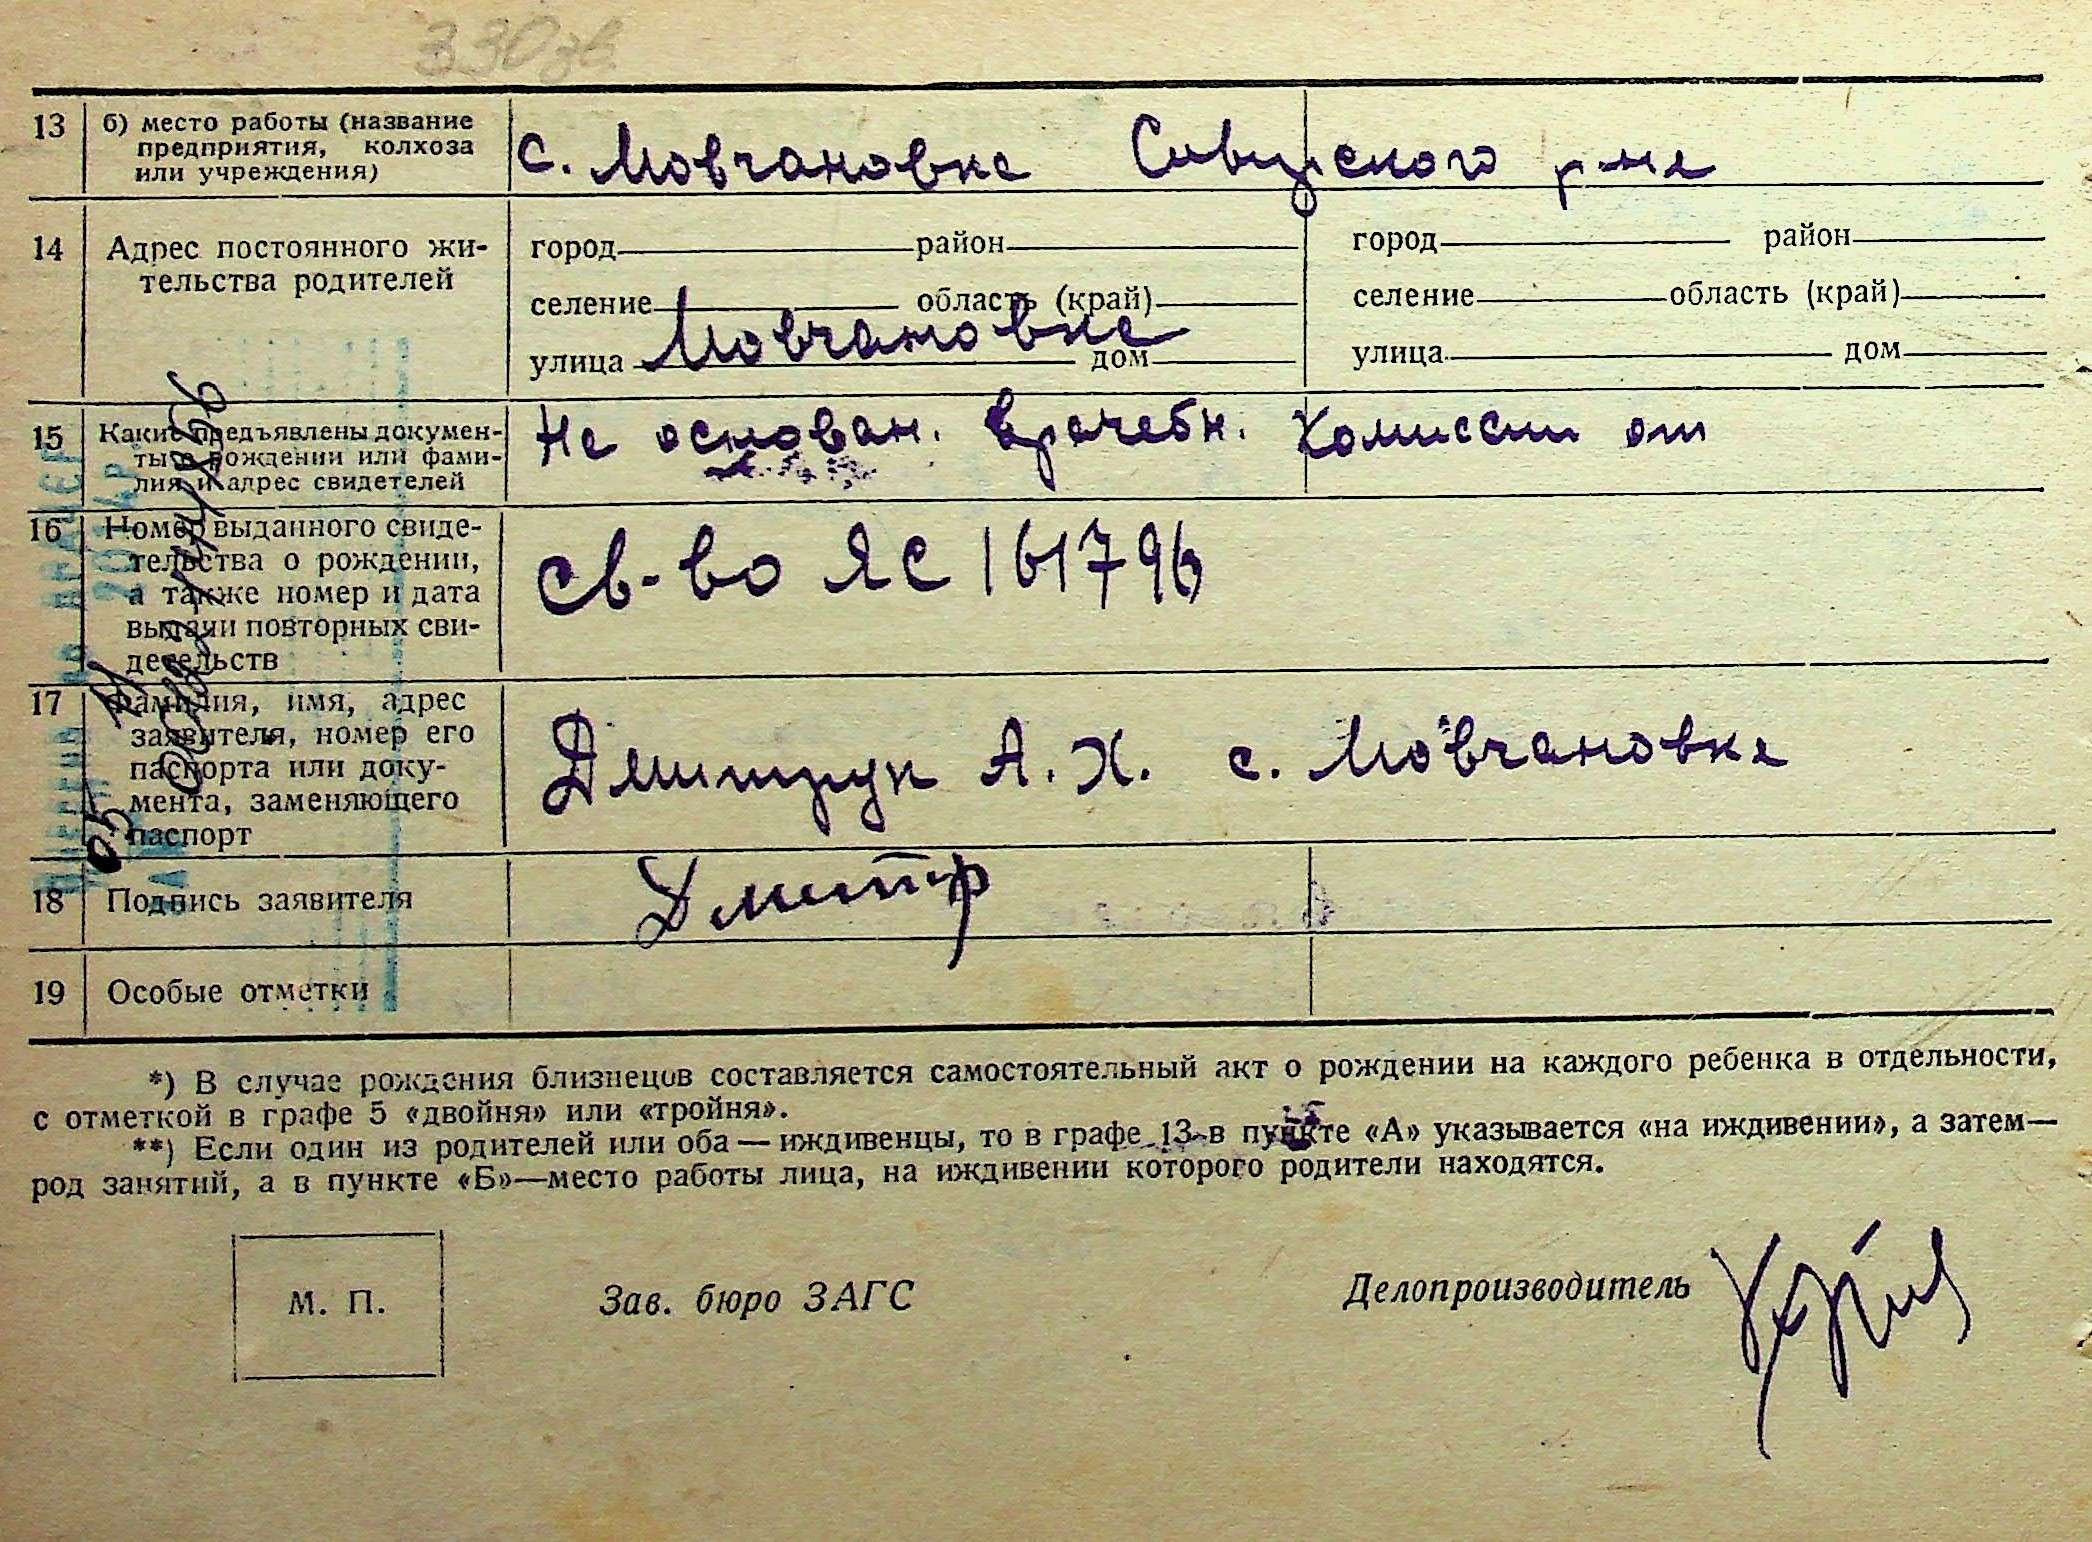 13 б) место работы (название
предприятия, колхоза
или учреждения)
с. Мовчановка р-на
14 Адрес постоянного жи-
тельства родителей
город район
селение область (край)
улица Мовчановка дом
город район
селение область (край)
улица дом
15 Какие предъявлены докумен-
ты о рождении или фами-
лия и адрес свидетелей
На основан. врачебн. комиссии от
16 Номер выданного свиде-
тельства о рождении,
а также номер и дата
выдачи повторных сви-
детельств
Св-во ЯС 161796
17 Фамилия, имя, адрес
заявителя, номер его
паспорта или доку-
мента, заменяющего
паспорт
Дмитрук А. Х. с. Мовчановка
18 Подпись заявителя
Дмитр
19 Особые отметки
*) В случае рождения близнецов составляется самостоятельный акт о рождении на каждого ребенка в отдельности,
с отметкой в графе 5 «двойня» или «тройня».
**) Если один из родителей или оба — иждивенцы, то в графе 13 в пункте «А» указывается «на иждивении», а затем—
род занятий, а в пункте «Б»—место работы лица, на иждивении которого родители находятся.
М. П.
Зав. бюро ЗАГС
Делопроизводитель